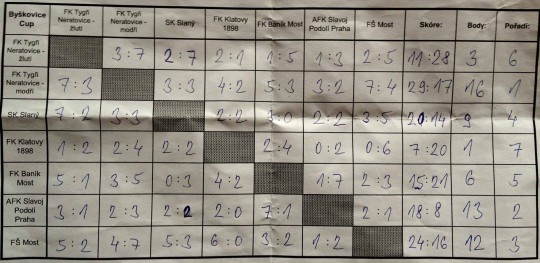 Byškovice Cup | FK Tygři Neratovice - žlutí | FK Tygři Neratovice - modří | SK Slaný | FK Klatovy 1898 | FK Baník Most | AFK Slavoj Podolí Praha | FŠ Most | Skóre: | Body: | Pořadí:
FK Tygři Neratovice - žlutí | 3:7 | 2:7 | 2:1 | 1:5 | 1:3 | 2:5 | 11:28 | 3 | 6
FK Tygři Neratovice - modří | 7:3 | 3:3 | 4:2 | 5:3 | 3:2 | 7:4 | 29:17 | 16 | 1
SK Slaný | 7:2 | 3:3 | 2:2 | 3:0 | 2:2 | 3:5 | 20:14 | 9 | 4
FK Klatovy 1898 | 1:2 | 2:4 | 2:2 | 2:4 | 0:2 | 0:6 | 7:20 | 1 | 7
FK Baník Most | 5:1 | 3:5 | 0:3 | 4:2 | 1:7 | 2:3 | 15:21 | 6 | 5
AFK Slavoj Podolí Praha | 3:1 | 2:3 | 2:2 | 2:0 | 7:1 | 2:1 | 18:8 | 13 | 2
FŠ Most | 5:2 | 4:7 | 5:3 | 6:0 | 3:2 | 1:2 | 24:16 | 12 | 3